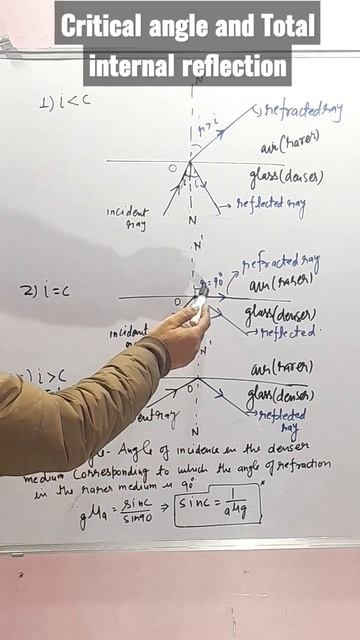 Critical angle and Total
internal reflection
N'
1) i < c
refracted ray
r > i
air (rarer)
O
glass (denser)
i
incident
ray
reflected ray
N
N'
refracted ray
2) i = c
r = 90°
air (rarer)
O
glass (denser)
incident
reflected
N'
air (rarer)
i > c
O
glass (denser)
ray
reflected
ray
N
Angle of incidence in the denser
medium corresponding to which the angle of refraction
in the rarer medium is 90°
gμa = sinc/sin90 ⇒ sinc = 1/aμg